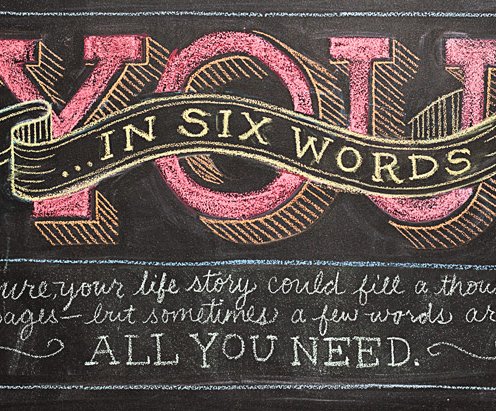 YOU
...IN SIX WORDS
ure, your life story could fill a thou
ages—but sometimes a few words ar
ALL YOU NEED.